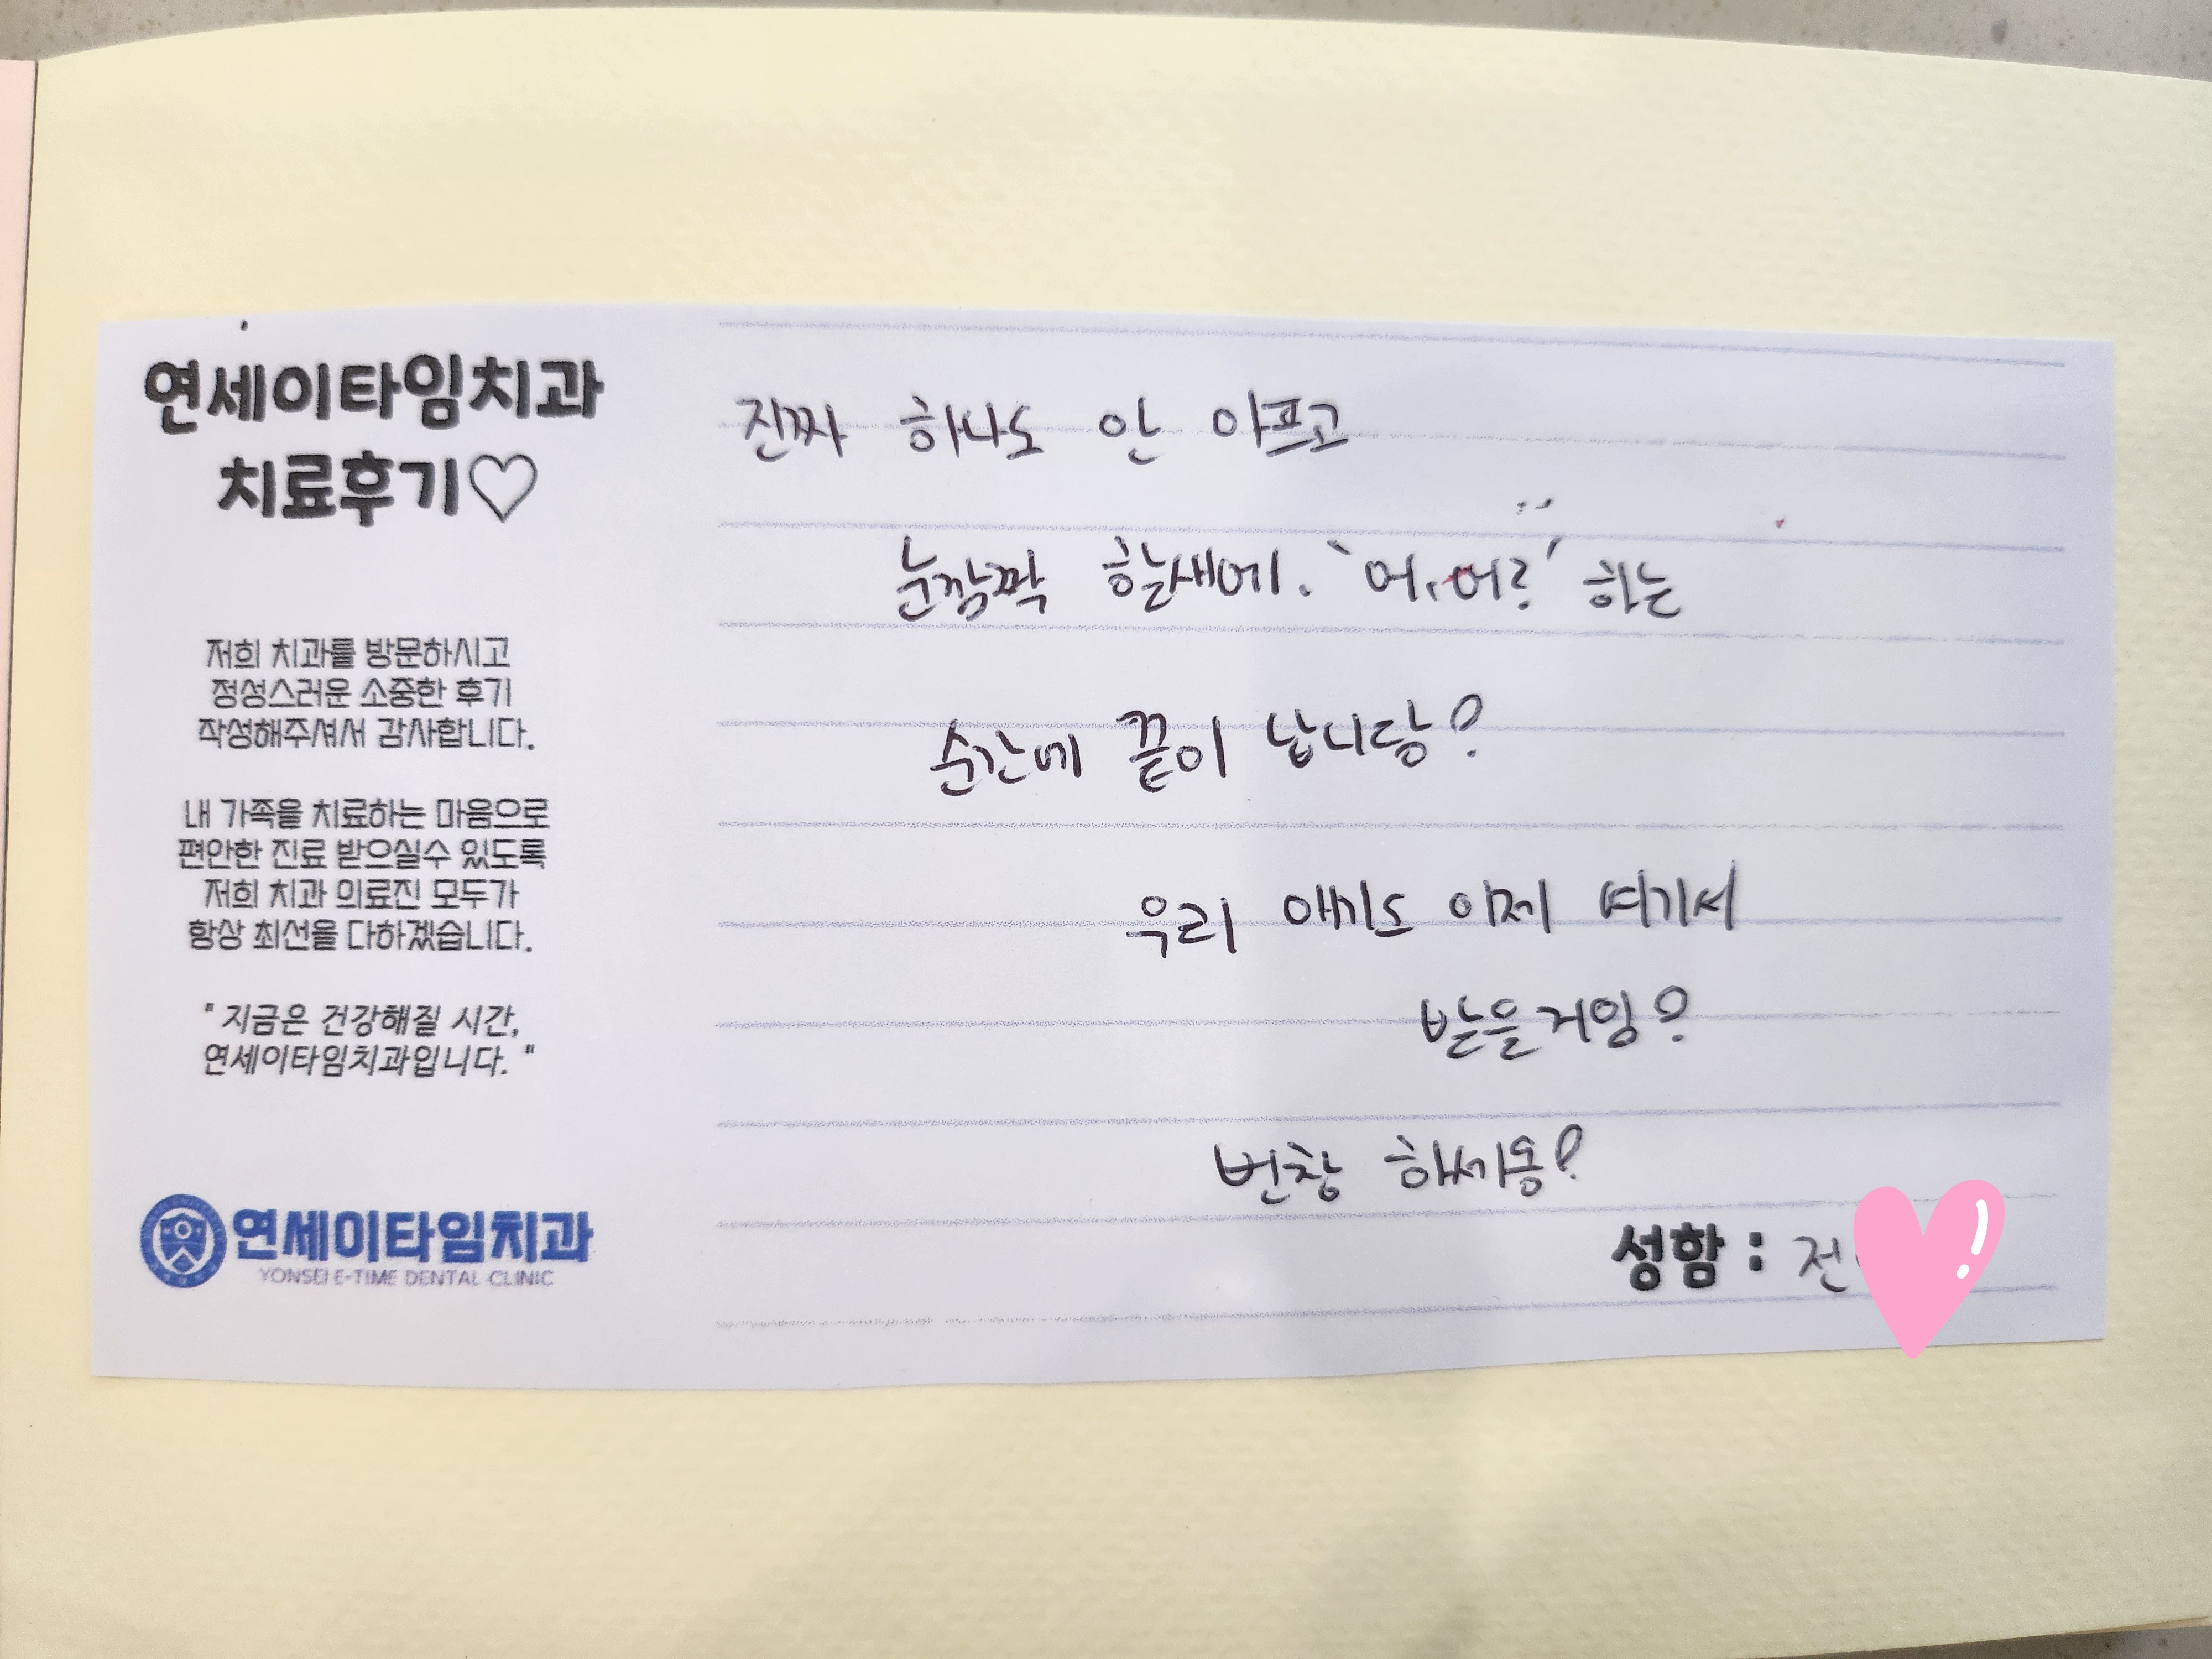 연세이타임치과
치료후기♡
저희 치과를 방문하시고
정성스러운 소중한 후기
작성해주셔서 감사합니다.
내 가족을 치료하는 마음으로
편안한 진료 받으실수 있도록
저희 치과 의료진 모두가
항상 최선을 다하겠습니다.
"지금은 건강해질 시간,
연세이타임치과입니다."
연세이타임치과
YONSEI E-TIME DENTAL CLINIC
진짜 하나도 안 아프고
눈깜짝 할새에. '어, 어?' 하는
순간에 끝이 납니당?
우리 애기도 이제 여기서
받을거임?
번창 하세용?
성함 : 전